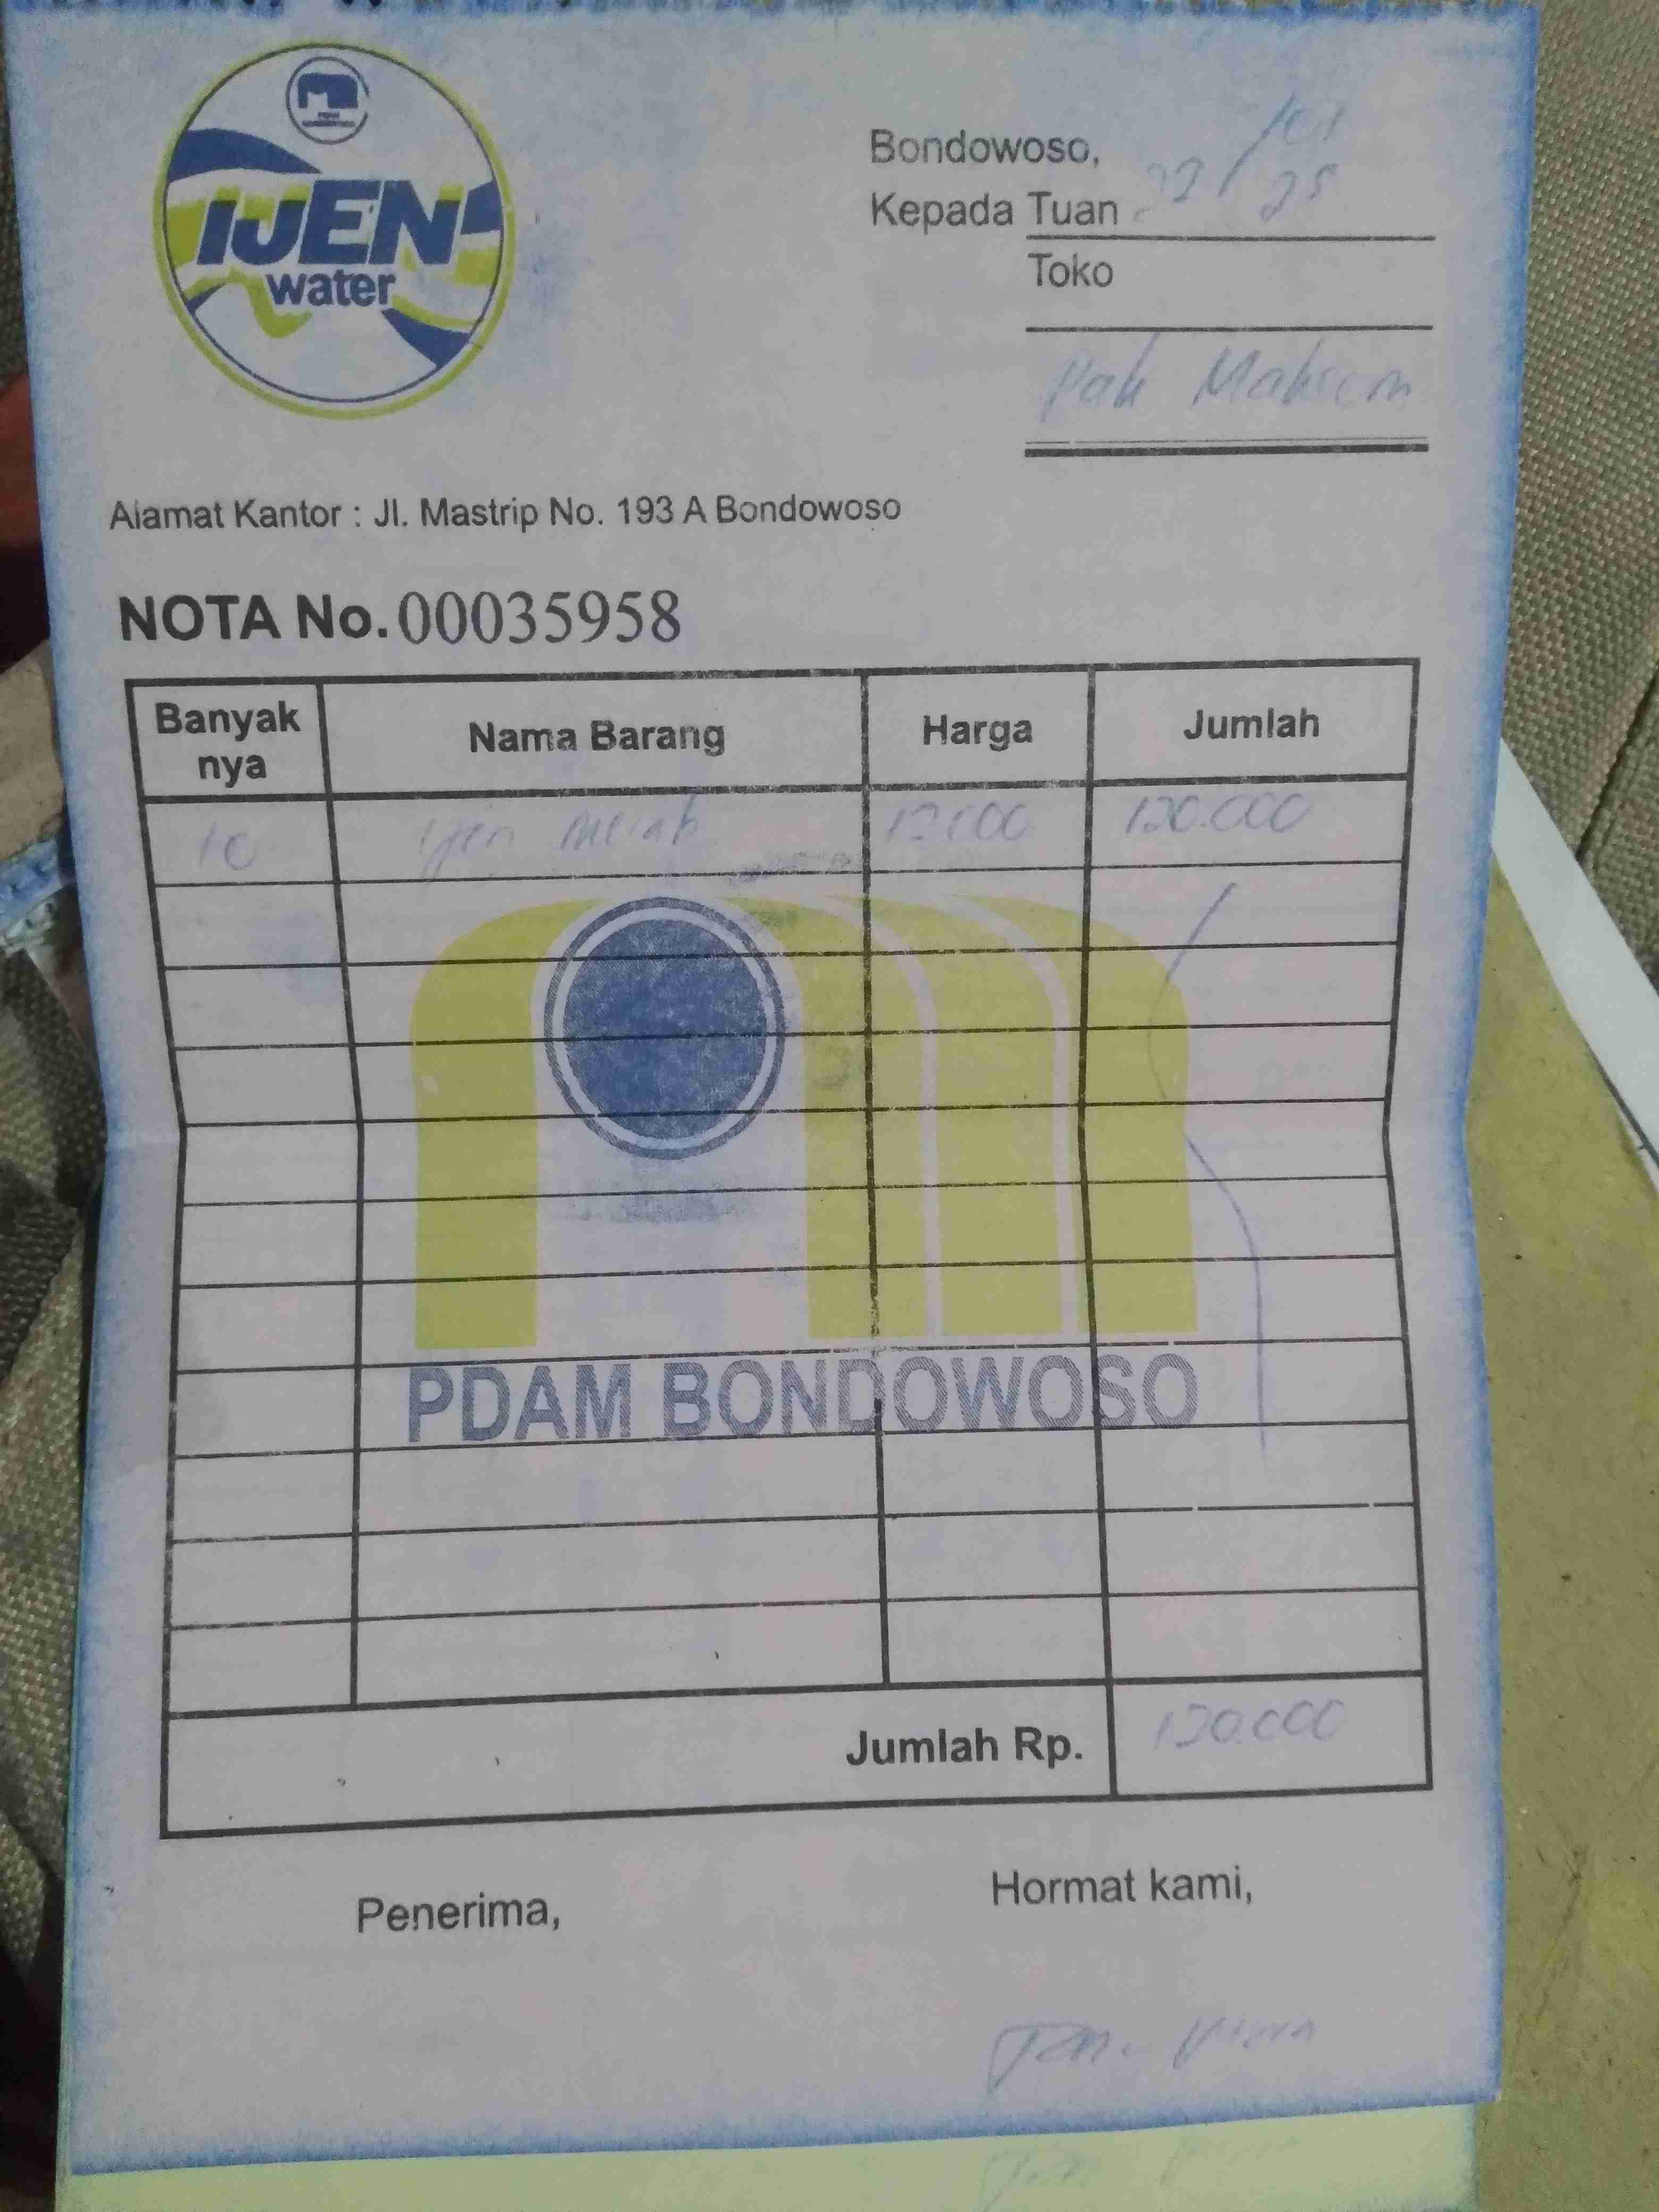 IJEN
water
Bondowoso, 22/01
25
Kepada Tuan
Toko
Pak
Alamat Kantor : Jl. Mastrip No. 193 A Bondowoso
NOTA No. 00035958
Banyak nya Nama Barang Harga Jumlah
10 Ijen 12.000 120.000
PDAM BONDOWOSO
Jumlah Rp. 120.000
Penerima, Hormat kami,